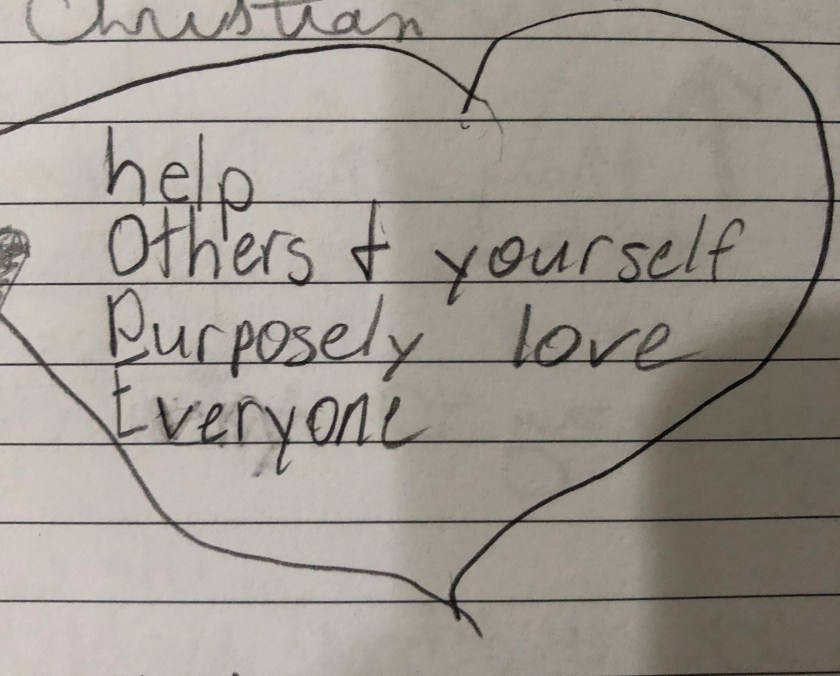 Christian
help
Others & yourself
Purposely love
Everyone